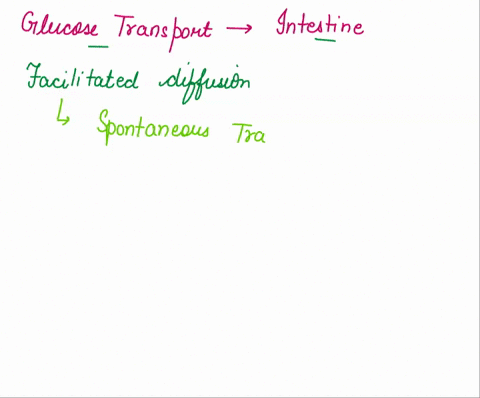 Glucose Transport → Intestine
Facilitated diffusion
↳ Spontaneous Tra